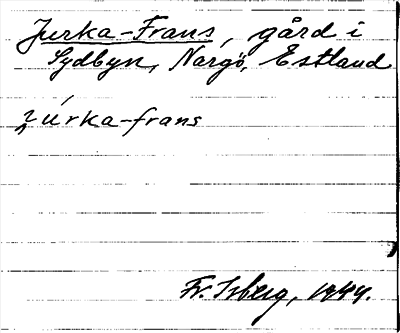 Jurka-Frans, gård i
Sydbyn, Nargö, Estland
júrka-frans
Fr. Isberg, 1944.